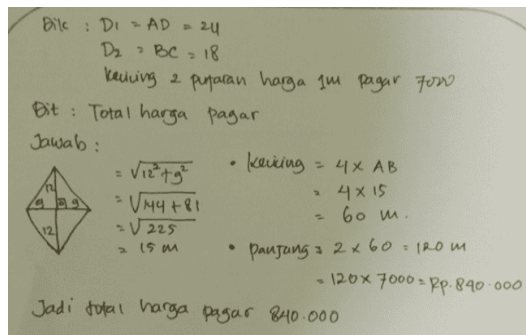 Dik : D1 = AD = 24
D2 = BC = 18
keliling 2 putaran harga 1m pagar 7000
Dit : Total harga pagar
Jawab :
= √12²+9²
= √144+81
= √225
= 15 m
12
9 9
12
• keliling = 4 x AB
= 4 x 15
= 60 m.
• panjang = 2 x 60 = 120 m
= 120 x 7000 = Rp. 840.000
Jadi total harga pagar 840.000